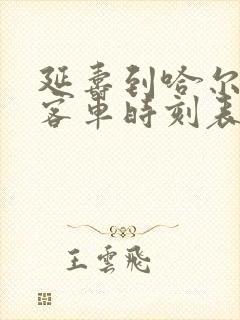 延壽到哈尔
客車時刻表
王雲飛